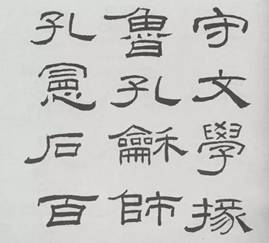 守文學掾
魯孔龢師
孔憲石百